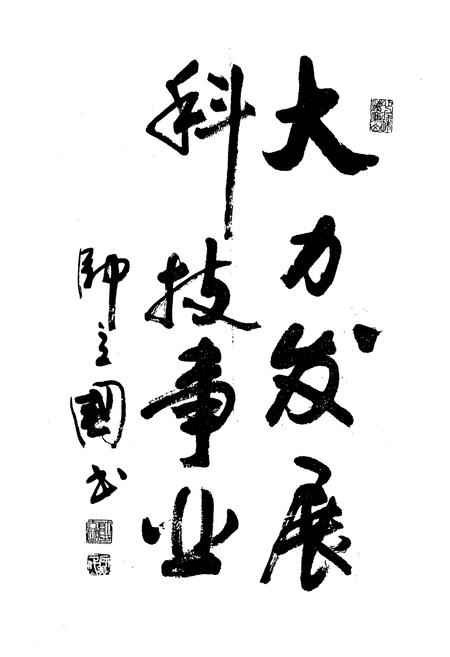 大力发展
科技事业
帅立国书